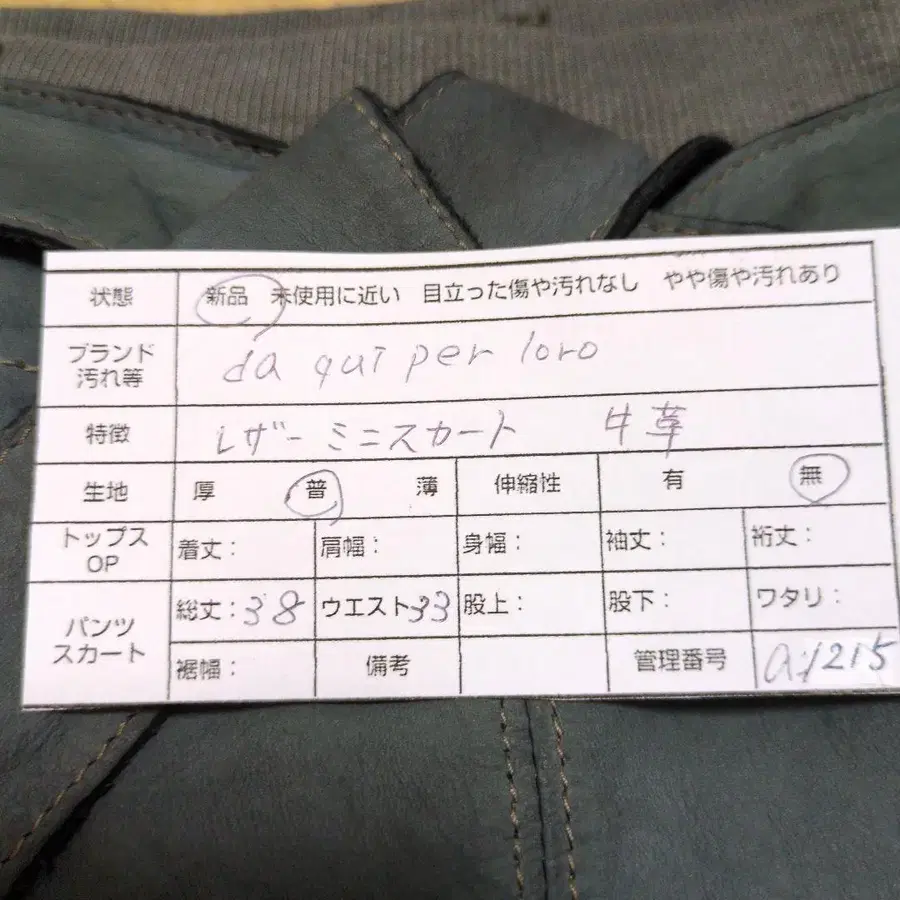 状態 新品 未使用に近い 目立った傷や汚れなし やや傷や汚れあり
ブランド
汚れ等 da qui per loro
特徴 レザーミニスカート 牛革
生地 厚 普 薄 伸縮性 有 無
トップス
OP 着丈: 肩幅: 身幅: 袖丈: 裄丈:
パンツ
スカート 総丈:38 ウエスト33 股上: 股下: ワタリ:
裾幅: 備考 管理番号 a1215